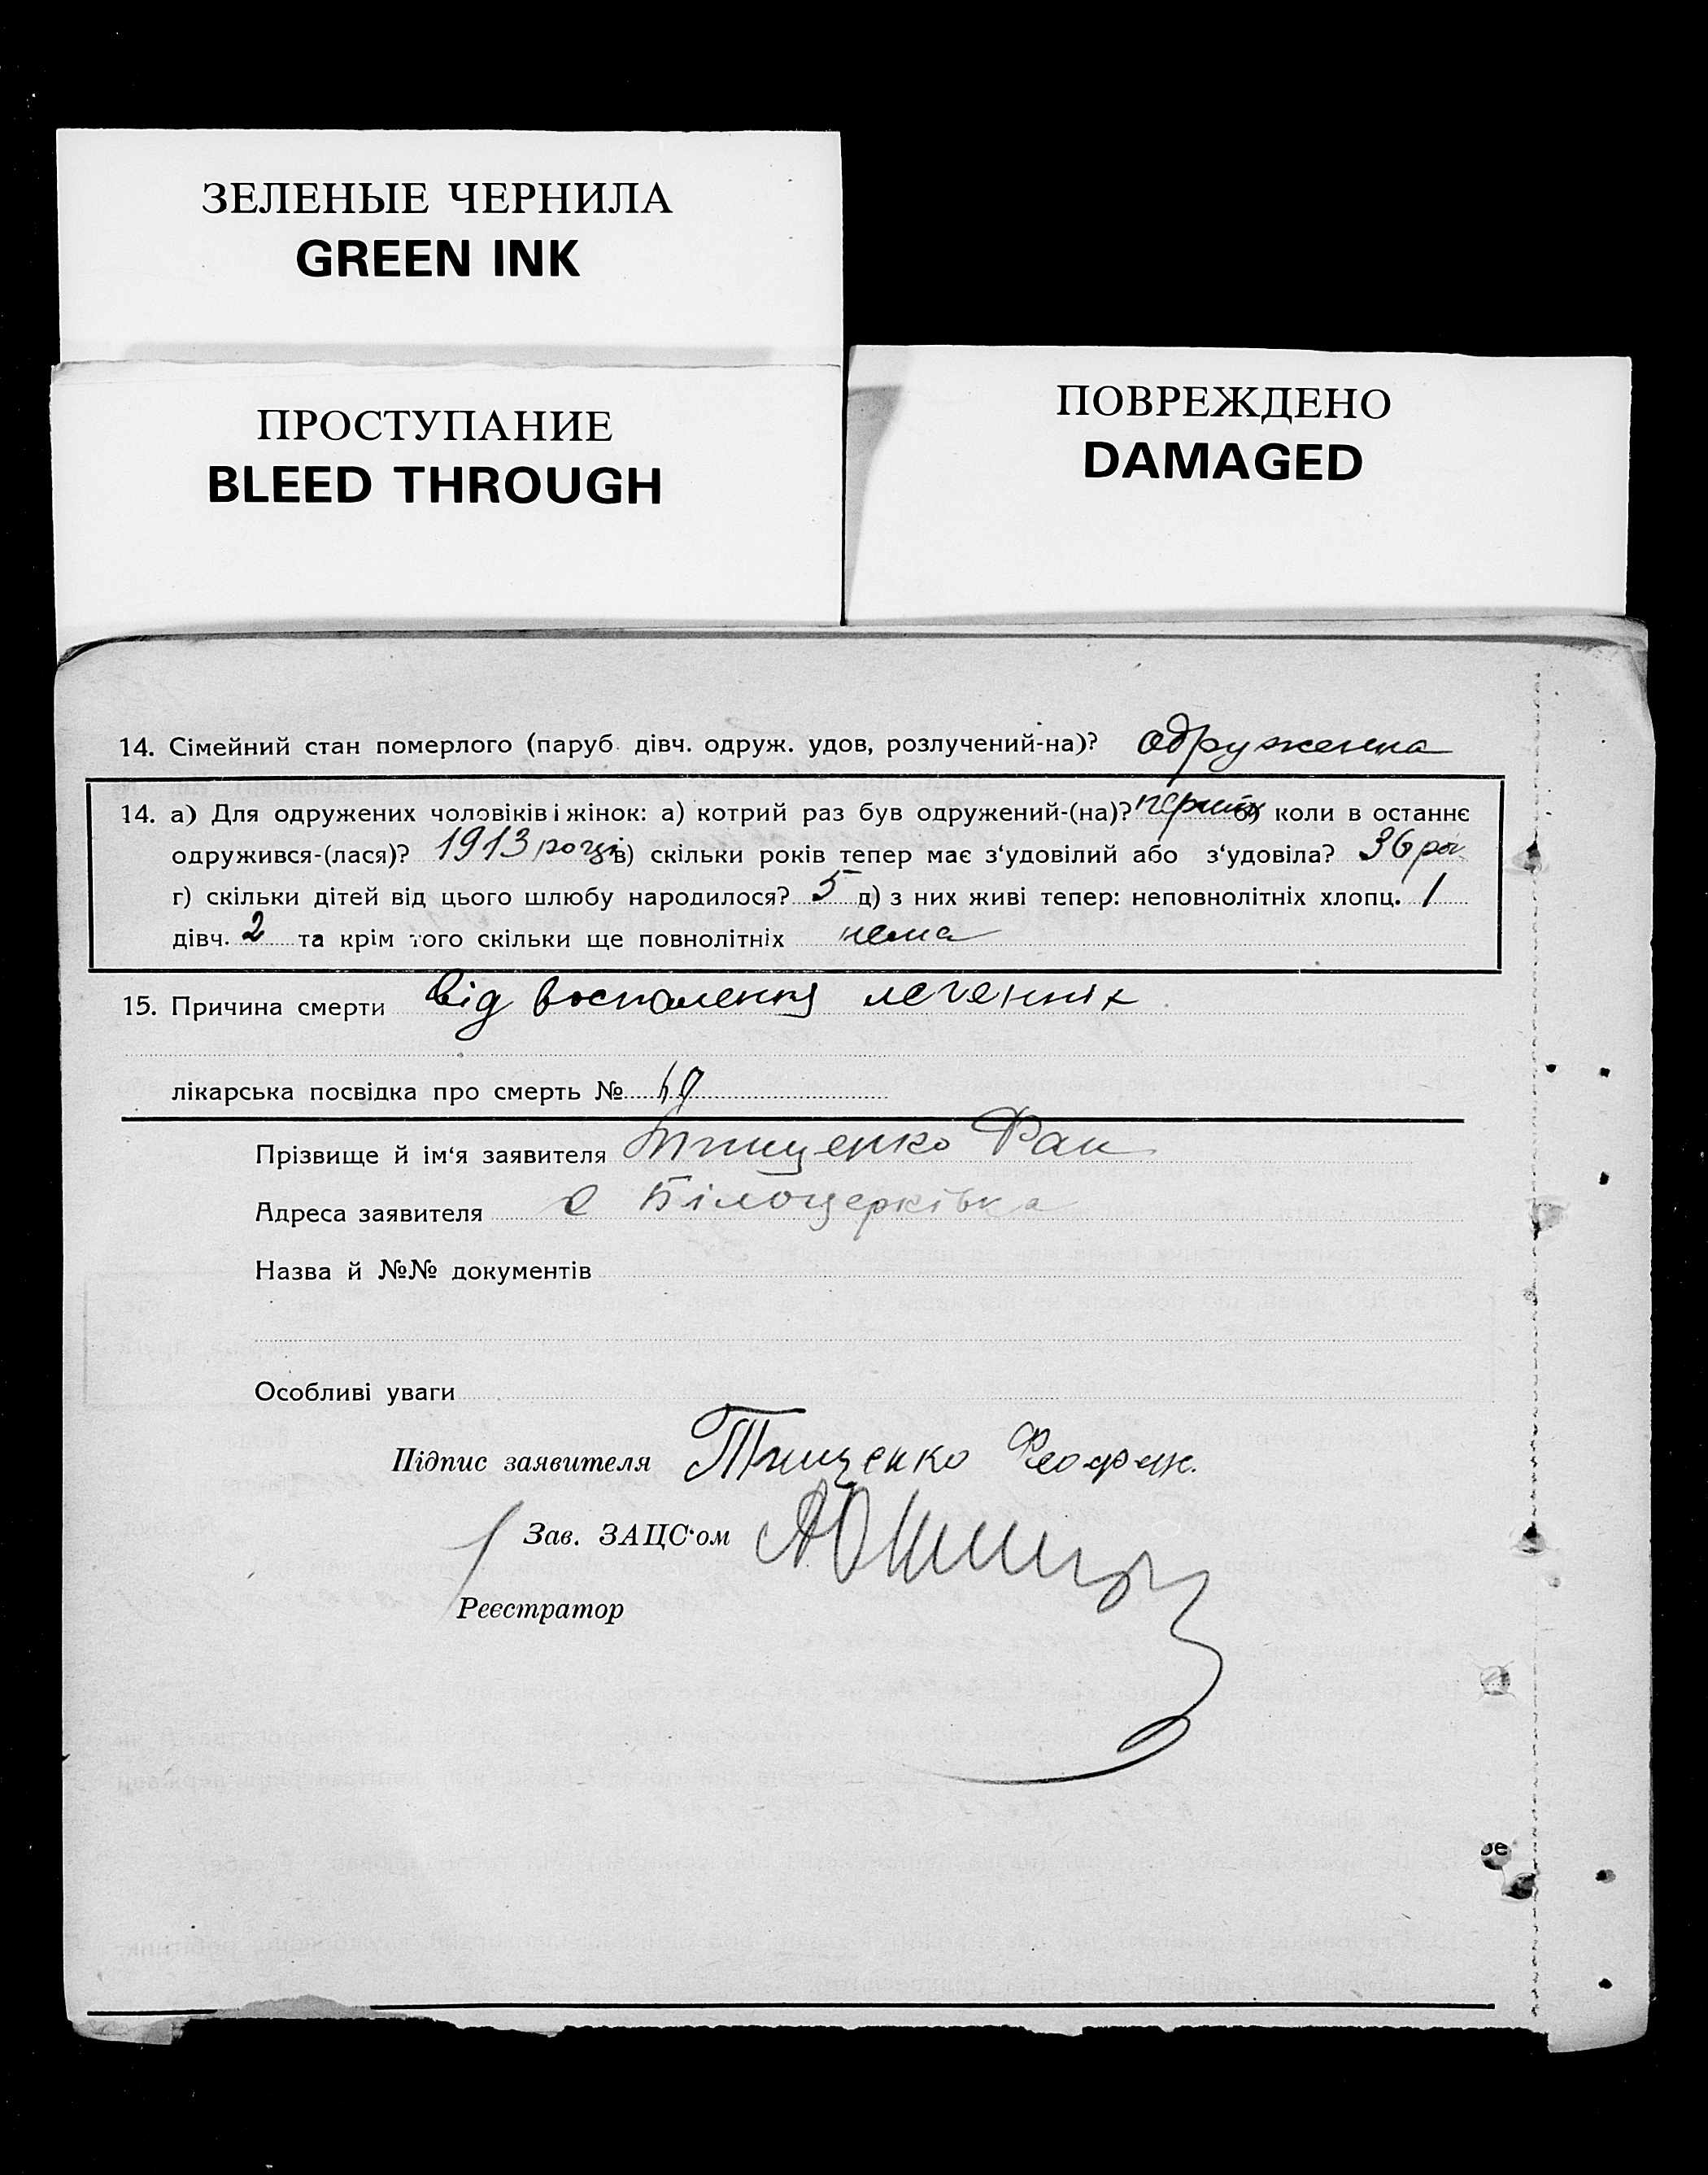 ЗЕЛЕНЫЕ ЧЕРНИЛА
GREEN INK
ПРОСТУПАНИЕ
BLEED THROUGH
ПОВРЕЖДЕНО
DAMAGED
14. Сімейний стан померлого (паруб. дівч. одруж. удов, розлучений-на)? одруженна
14. а) Для одружених чоловіків і жінок: а) котрий раз був одружений-(на)? перший б) коли в останнє
одружився-(лася)? 1913 році в) скільки років тепер має з‘удовілий або з‘удовіла? 36 рок
г) скільки дітей від цього шлюбу народилося? 5 д) з них живі тепер: неповнолітніх хлопц. 1
дівч. 2 та крім того скільки ще повнолітніх нема
15. Причина смерти від воспалення легенних
лікарська посвідка про смерть №
Прізвище й ім‘я заявителя Тищенко Фан
Адреса заявителя с Білоцерківка
Назва й №№ документів
Особливі уваги
Підпис заявителя Тищенко
Зав. ЗАЦС‘ом
Реєстратор